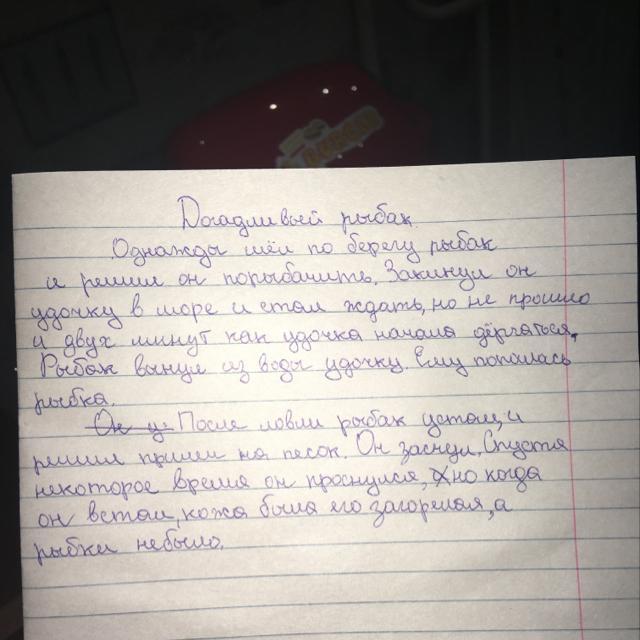 Догадливый рыбак.
Однажды шёл по берегу рыбак
и решил он порыбачить. Закинул он
удочку в море и стал ждать, но не прошло
и двух минут как удочка начала дёргаться.
Рыбак вынул из воды удочку. Ему попалась
рыбка.
После ловли рыбак устал, и
решил прилеч на песок. Он заснул. Спустя
некоторое время он проснулся, но когда
он встал, кожа была его загорелая, а
рыбки небыло.